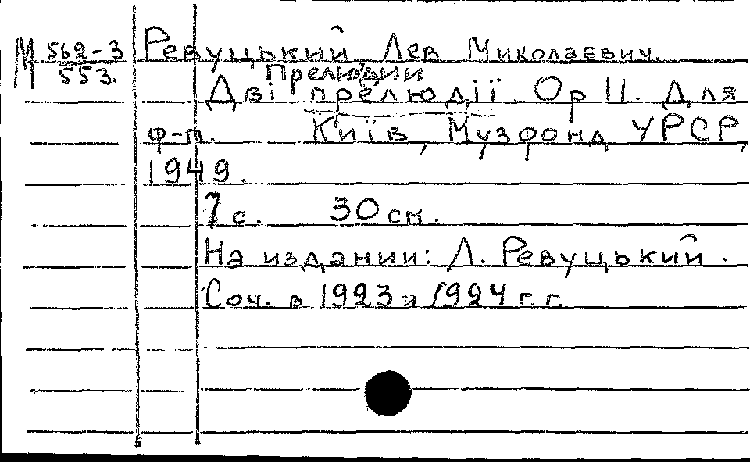 М 562-3 Ревуцький, Лев Миколаевич.
553. Прелюдии
Дві прелюдії. Op 11. Для
ф-п. Київ, Музфонд УРСР,
1949.
7 с. 30 см.
На издании: Л. Ревуцький.
Соч. в 1923 и 1924 г.г.